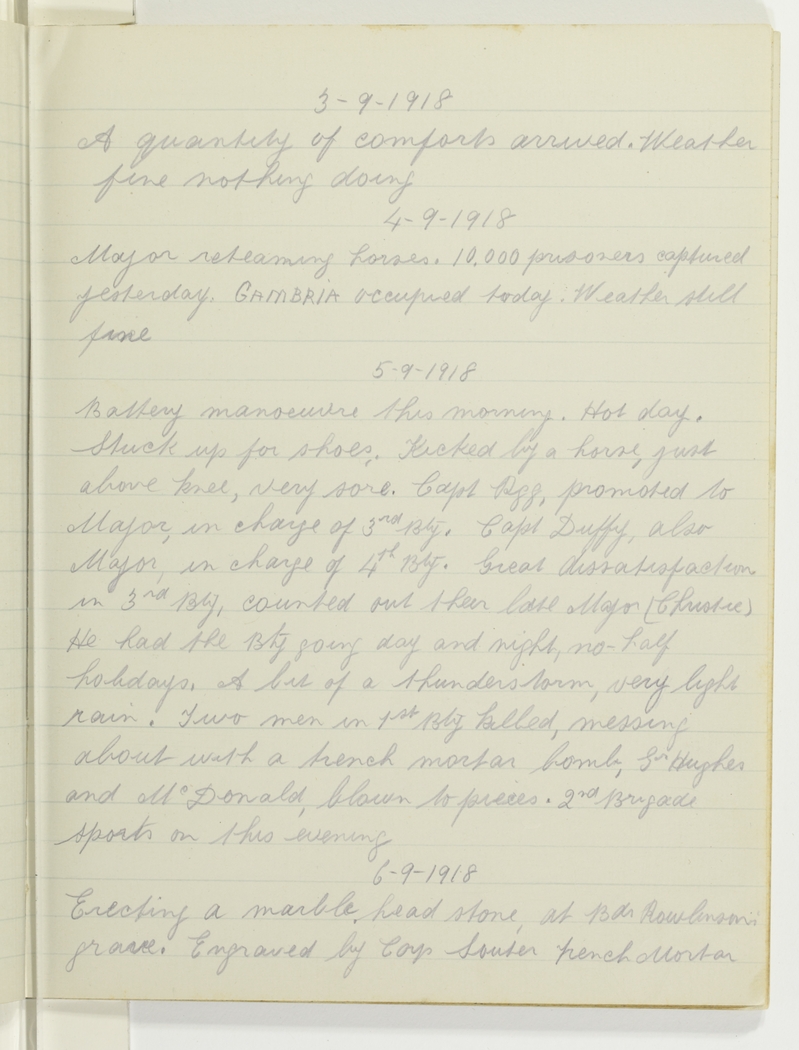 3-9-1918
A quantity of comforts arrived. Weather
fine nothing doing
4-9-1918
Major reteaming horses. 10.000 prisoners captured
yesterday. GAMBRIA occupied today. Weather still
fine
5-9-1918
Battery manoeuvre this morning. Hot day.
Stuck up for shoes. Kicked by a horse, just
above knee, very sore. Capt Rgg, promoted to
Major, in charge of 3rd Bty. Capt Duffy, also
Major, in charge of 4th Bty. Great dissatisfaction
in 3rd Bty, counted out their late Major (Christie)
He had the Bty going day and night, no-half
holidays. A bit of a thunderstorm, very light
rain. Two men in 1st Bty killed, messing
about with a trench mortar bomb, Gnr Hughes
and McDonald, blown to pieces. 2nd Brigade
sports on this evening
6-9-1918
Erecting a marble head stone, at Bdr Rowlinson's
grave. Engraved by Corp Souter Trench Mortar